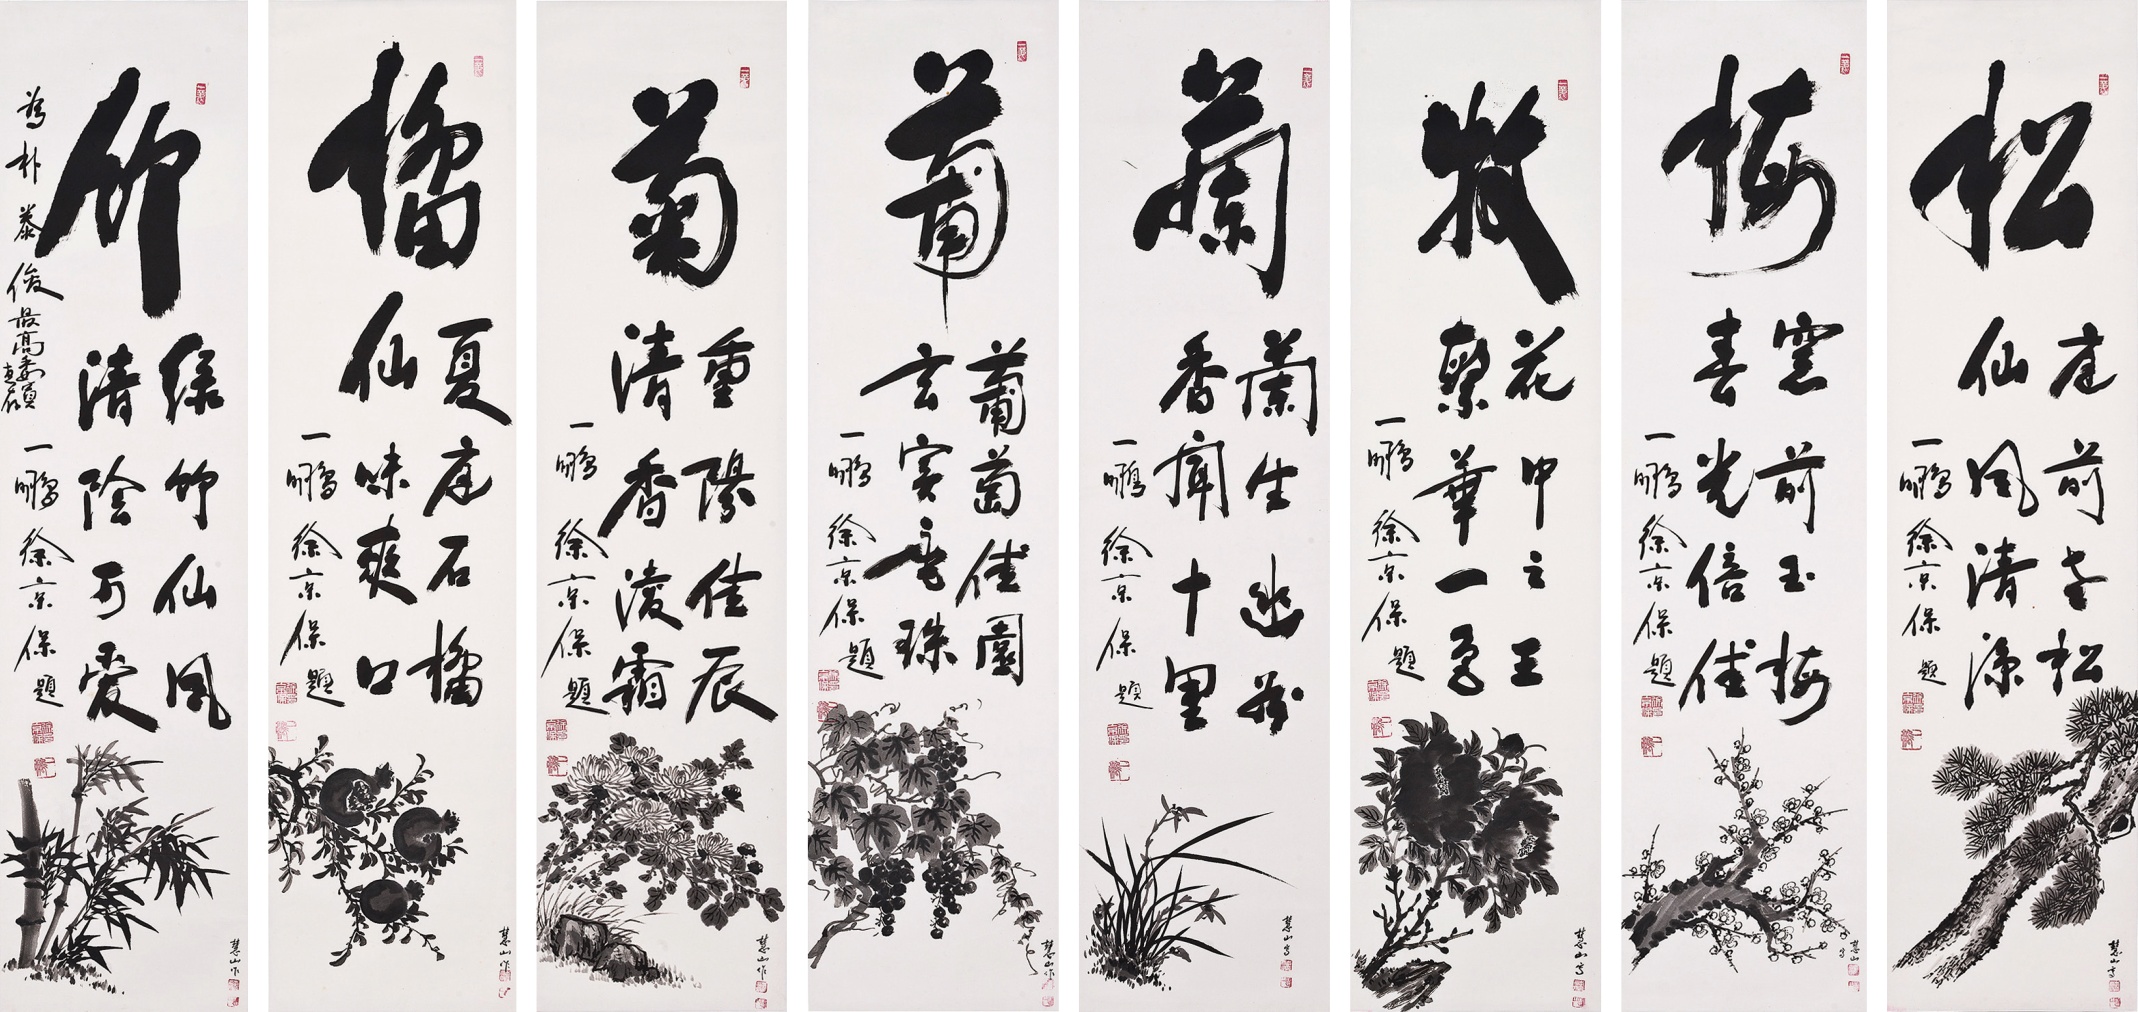 松
庭前老松
仙風清涼
一鵬 徐京保 題
慧山寫
梅
窓前玉梅
春光倍佳
一鵬 徐京保 題
慧山寫
牧
花中之王
繁華一身
一鵬 徐京保 題
慧山寫
蘭
蘭生幽谷
香聞十里
一鵬 徐京保 題
慧山寫
葡
葡萄佳園
玄實垂珠
一鵬 徐京保 題
慧山作
菊
重陽佳辰
清香凌霜
一鵬 徐京保 題
慧山作
橊
夏庭石橊
仙味爽口
一鵬 徐京保 題
慧山作
竹
綠竹仙風
清陰可愛
為朴泰俊最高委員
一鵬 徐京保 題
慧山作